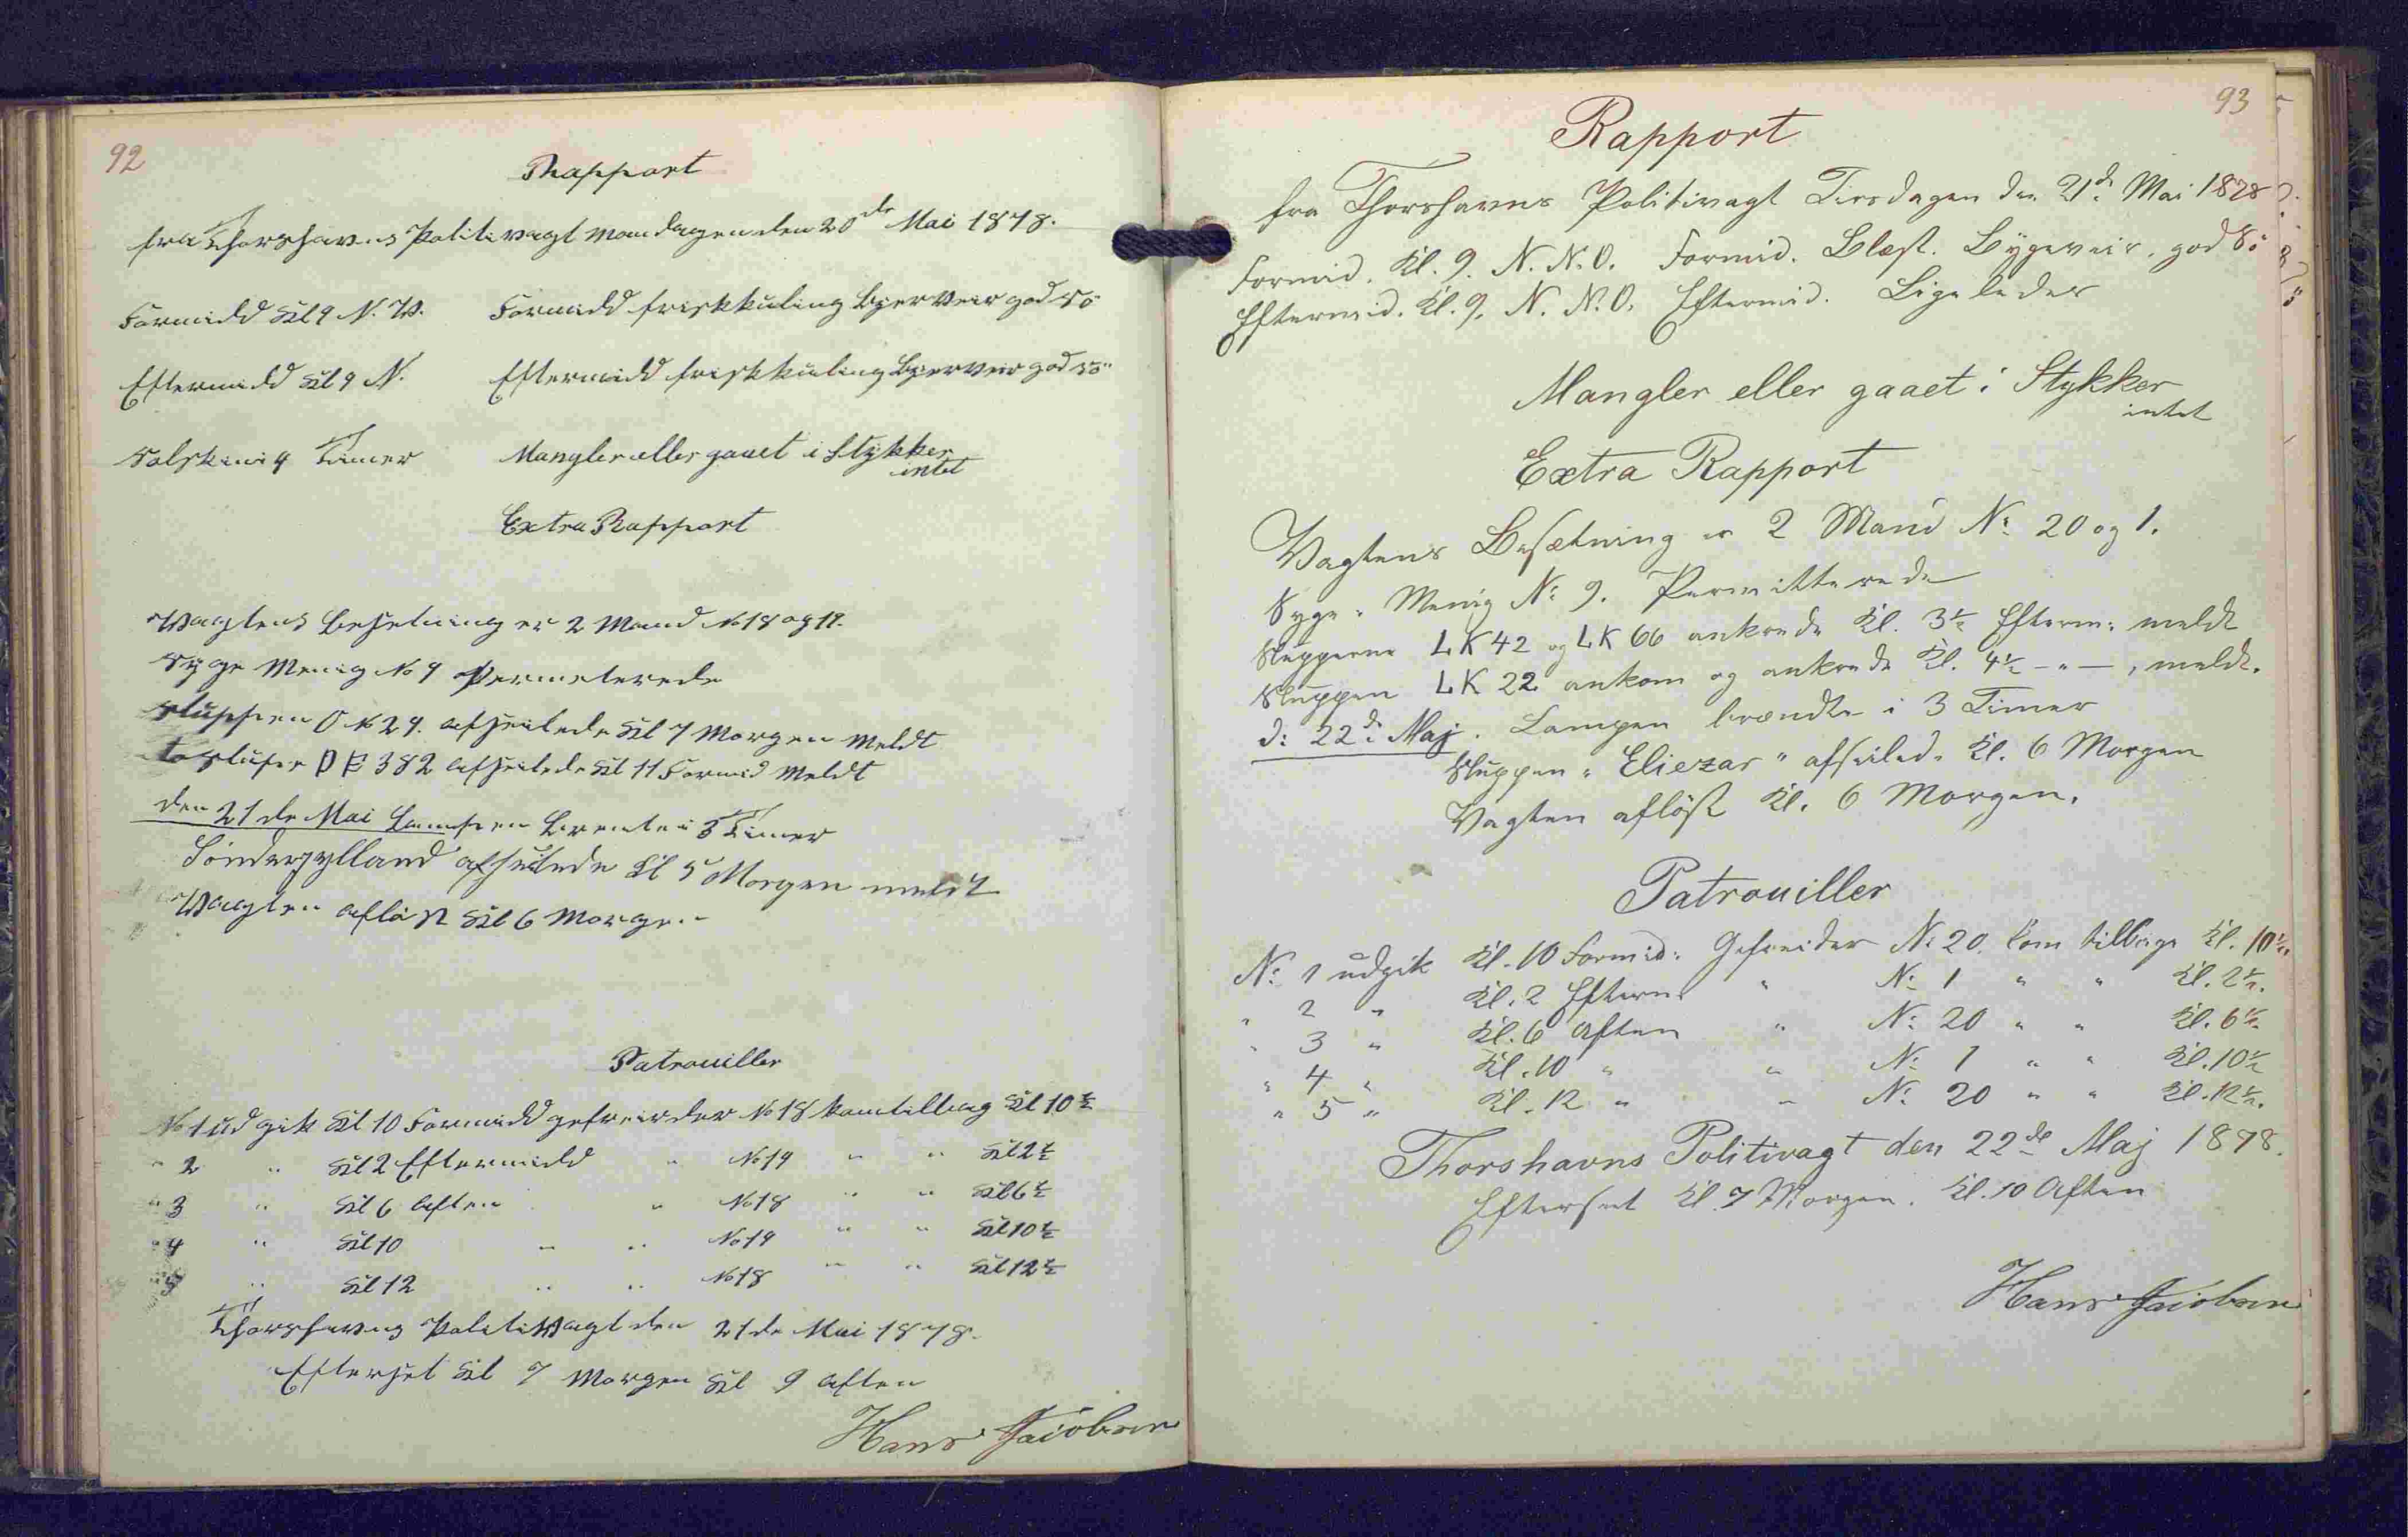 92
Rapport
fra Thorshavns Politivagt Mandagen den 20de Mai 1878.
Formidd Kl 9 N. W. Formidd friskkuling Byerveir god Sö
Eftermidd Kl 9 N. Eftermidd friskkuling Byerveir god sö
Solskin i 4 Timer Mangler eller gaaet i Stykker
intet
Extra Rapport
Vagtens Besetning er 2 Mand No 18 og 19.
Syge Menig No 9 Permeterede
Sluppen O N 24. afseilede Kl 7 Morgen Meldt
382 afseilede Kl 11 Formid Meldt
den 21 de Mai Lampen Brente i 3 Timer
Sönderjylland afseilede Kl 5 Morgen meldt
Vagten aflöst Kl 6 Morgen
Patrouiller
No 1 ud gik Kl 10 Formidd gefreider No 18 kom tilbag Kl 10½
" 2 " Kl 2 Eftermidd " No 19 " " Kl 2½
" 3 " Kl 6 Aften " No 18 " " Kl 6½
" 4 " Kl 10 " " No 19 " " Kl 10½
5 " Kl 12 " " No 18 " " Kl 12½
Thorshavns PolitiVagt den 21 de Mai 1878.
Efterset Kl 7 Morgen Kl 9 Aften
Hans Jacobsen
93
Rapport
fra Thorshavns Politivagt Tirsdagen den 21de Mai 1878
Formid. Kl. 9. N. N. O. Formid. Blæst. Bygeveir. god Sö
Eftermid. Kl. 9. N. N. O. Eftermid. Ligeledes
Mangler eller gaaet i Stykker
intet
Extra Rapport
Vagtens Besætning er 2 Mand No 20 og 1.
Syge: Menig No 9. Permitterede
Slupperne LK 42 og LK 66 ankrede Kl. 3½ Efterm: meldt
Sluppen LK 22 ankom og ankrede Kl. 4½ — " —, meldt.
d: 22de Maj. Lampen brændte i 3 Timer
Sluppen "Eliezar" afseilede Kl. 6 Morgen
Vagten aflöst Kl. 6 Morgen.
Patrouiller
No 1 udgik Kl. 10 Formid: Gefreider No 20. kom tilbage Kl. 10½
" 2 " Kl. 2 Efterm: " No 1 " " Kl. 2½.
" 3 " Kl. 6 Aften " No 20 " " Kl. 6½
" 4 " Kl. 10 " " No 1 " " Kl. 10½
" 5 " Kl. 12 " " No 20 " " Kl. 12½.
Thorshavns Politivagt den 22de Maj 1878.
Efterset Kl. 7 Morgen. Kl. 10 Aften
Hans Jacobsen